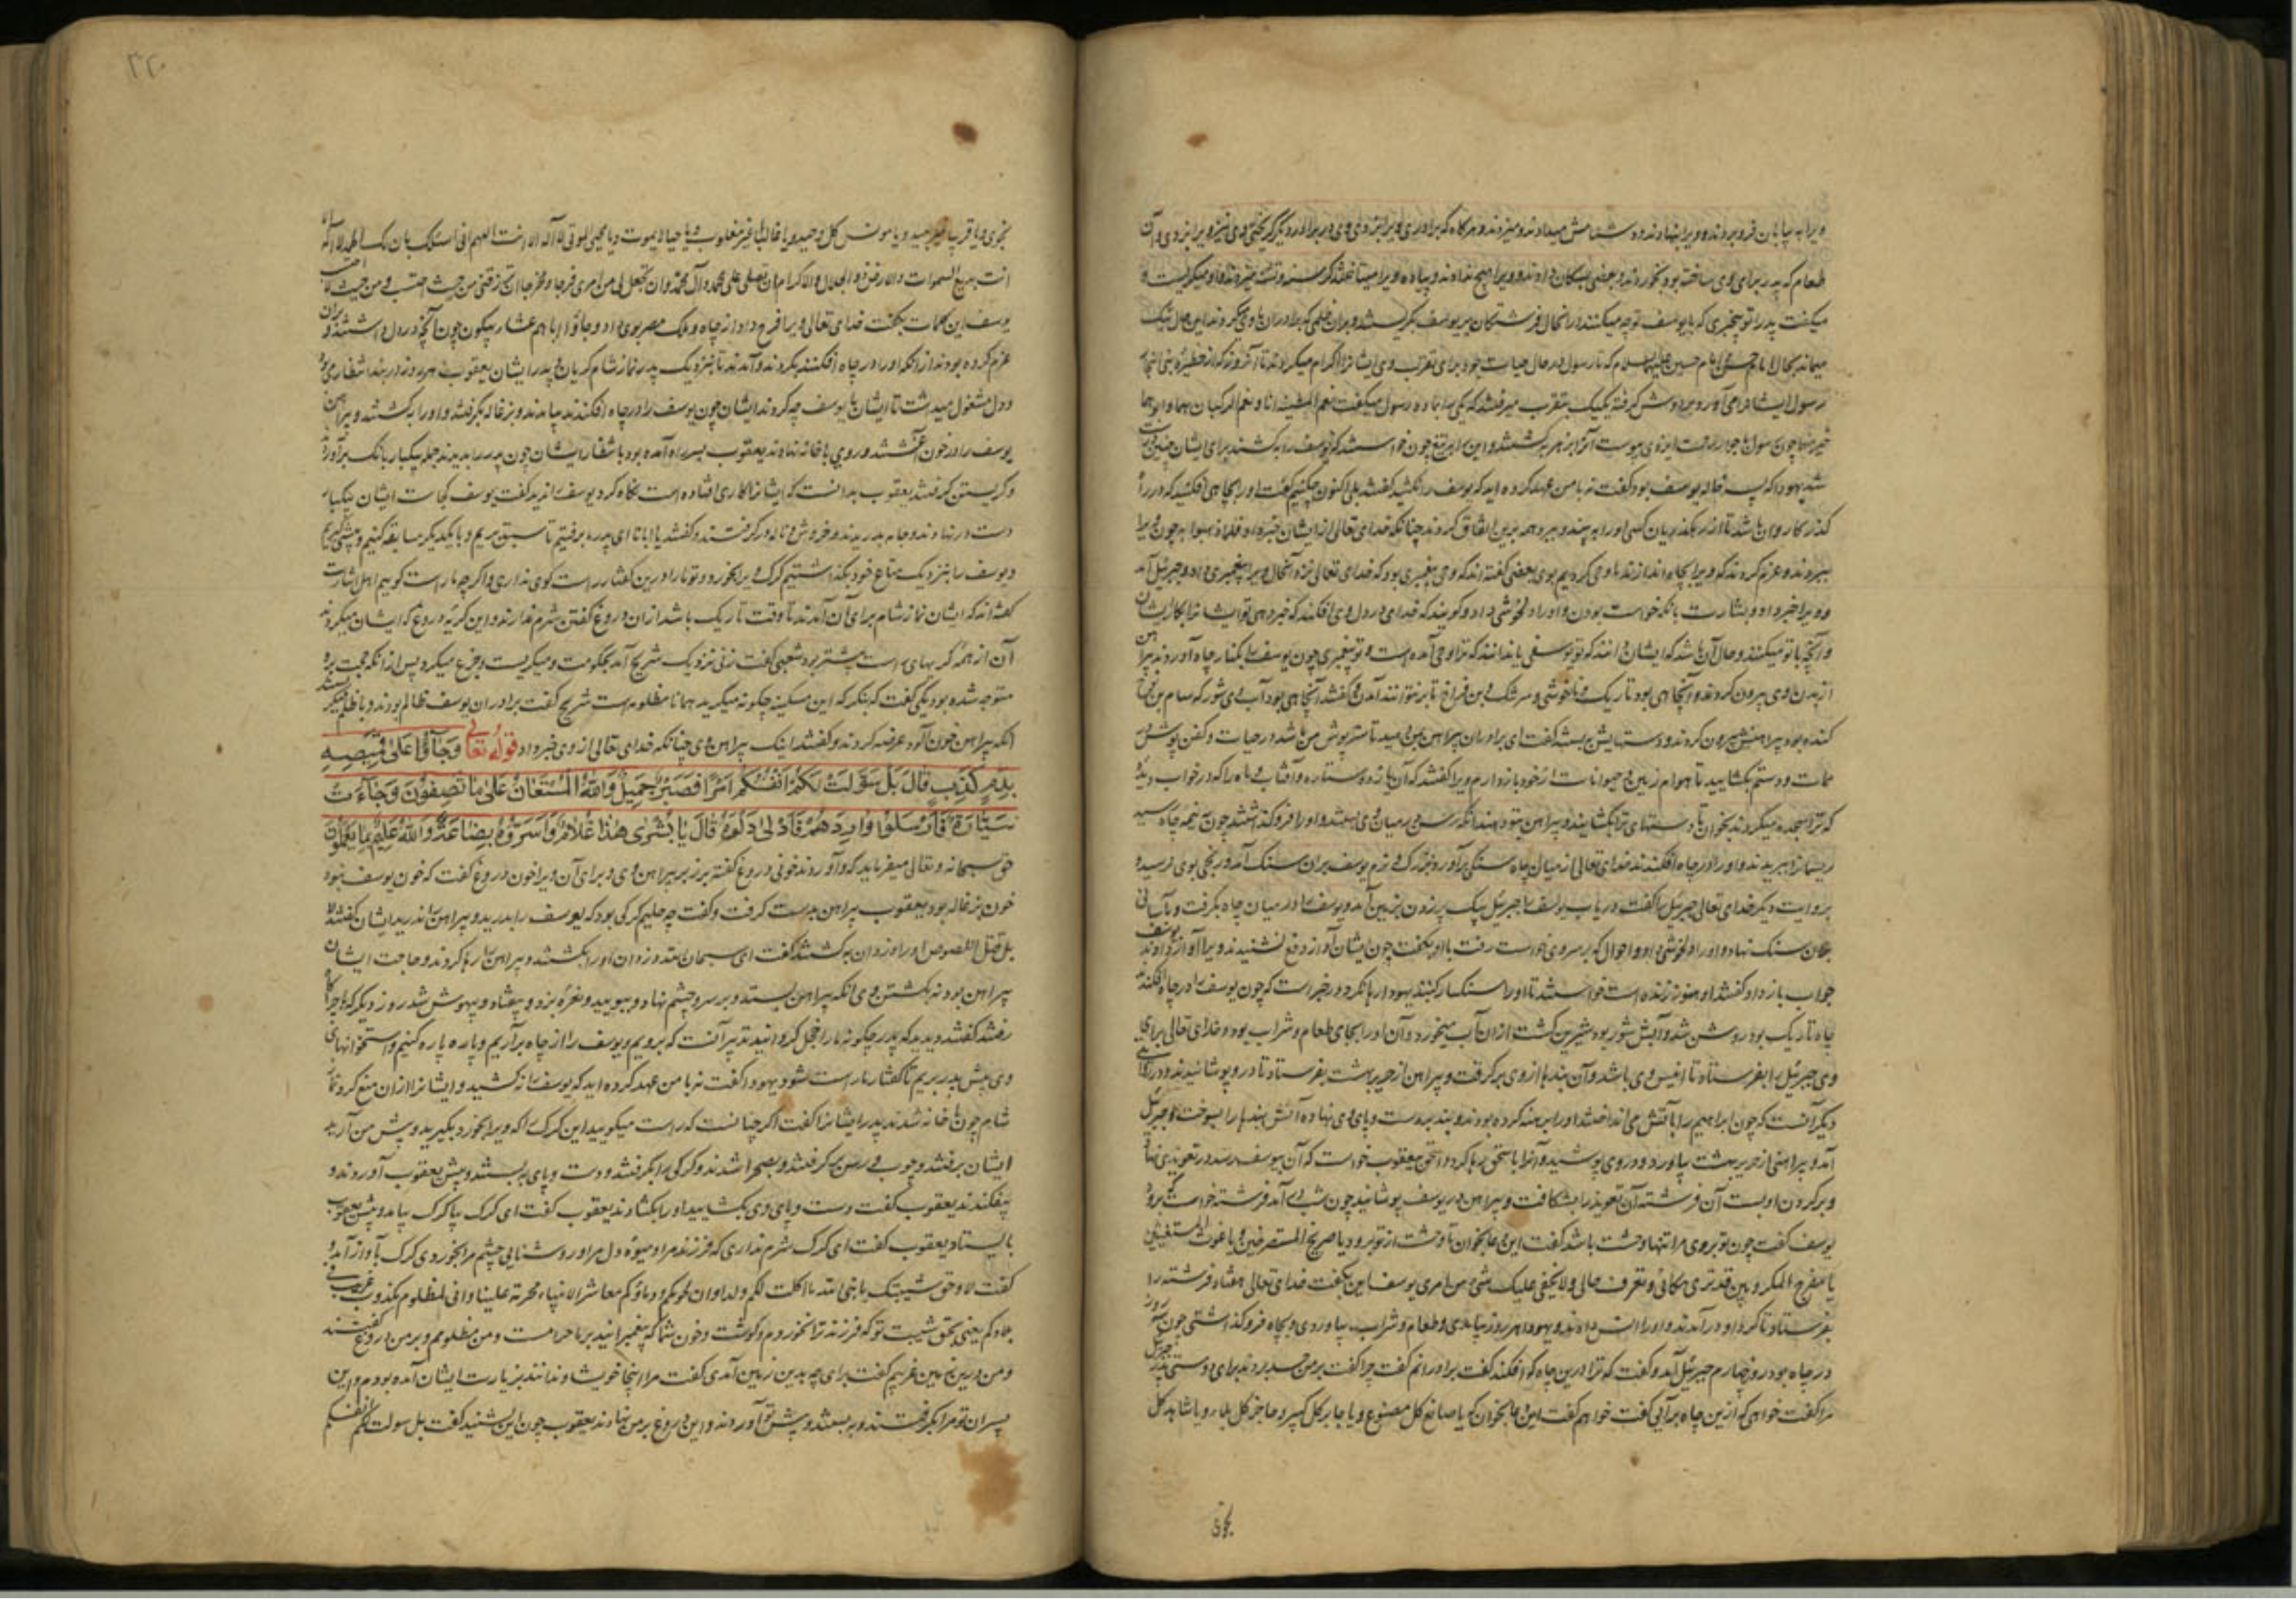 ویرا به بیابان فرو بردند و ویرا بنهادند و دشنامش میدادند و میزدند و هرگاه که برادری ویرا بزدی وی در برادر دیگر گریختی وی نیز ویرا بزدی و آن
طعام که پدر برای وی ساخته بود بخوردند و بعضی بسگان دادند و ویرا هیچ ندادند و پیاده ویرا میتاختند گرسنه و تشنه میزدند و او میگریست و
میگفت پدر را تو بیخبری که با یوسف تو چه میکنند در آنحال فرشتگان بر یوسف بگریستند و بران ظلمی که برادران با وی میکردند این حال نیک
میماند بحال امام حسن و امام حسین علیهما السلام که تا رسول در حال حیات بود برای تقرب وی ایشانرا اکرام میکردند تا آنروز که از حظیره بنی النجار
رسول ایشانرا می آورد بر دوش گرفته یکیک بتقرب میرفتند که یکی را بما ده رسول میگفت نعم المطیة انا و نعم الرکبان هما و ابوهما
خیر منهما چون رسول بجوار رحمت ایزدی پیوست آنرا بزهر بکشتند و این را بتیغ چون خواستند که یوسف را بکشند برای ایشان چنین
شد یهودا که پسر خاله یوسف بود گفت نه با من عهد کرده اید که یوسف را نکشید گفتند بلی اکنون چکنیم گفت او را بجاهی افکنید که در ره
گذر کاروان باشد تا از رهگذریان کسی او را ببیند و ببرد همه برین اتفاق کردند چنانکه خدای تعالی از ایشان خبر داد فلما ذهبوا به چون ویرا
ببردند و عزم کردند که ویرا بچاه اندازند ما وحی کردیم بوی بعضی گفته اند که وحی پیغمبری بود که خدای تعالی نزد آنحال ویرا پیغمبری داد و جبرئیل آمد
و ویرا خبر داد و بشارت بآنکه خواست بودن و او را دلخوشی داد و گویند که خدای در دل وی افکند که خبر دهی تو ایشانرا بکار ایشان
و آنچه با تو میکنند و حال آن باشد که ایشان ندانند که تو یوسفی یا ندانند که ترا وحی آمده است و تو پیغمبری چون یوسف را بکنار چاه آوردند پیراهن
از بدن وی بیرون کردند و آن چاهی بود تاریک و ناخوش و سر تنگ و بن فراخ تا بر نتوانند آمدن و گفتند آن چاهی بود آب وی شور که سام بن نوح
کنده بود پیراهنش بیرون کردند و دستهایش ببستند گفت ای برادران پیراهن بمن دهید تا ستر پوش من باشد در حیات و کفن پوش من
ممات و دستم بگشایید تا هوام زمین و حیوانات از خود باز دارم ویرا گفتند که آن یازده ستاره و آفتاب و ماه را که در خواب دیدی
که ترا سجده میکردند بخوان تا دستهای ترا بگشایند و پیراهن بتو دهند آنگه رسن بر میان وی بستند و او را فرو گذاشتند چون بنیمه چاه رسید
ریسمانرا ببریدند و او را در چاه افکندند خدای تعالی از میان چاه سنگی برآورد بزرگ و نرم یوسف بران سنگ آمد و رنجی بوی نرسید
بروایت دیگر خدای تعالی جبرئیل را گفت دریاب یوسف را جبرئیل بیک پر زدن بزمین آمد و یوسف را در میان چاه بگرفت و بآسانی
بران سنگ نهاد و او را دلخوشی داد و احوال که بر سر وی خواست رفت با او بگفت چون ایشان آواز وقع نشنیدند ویرا آواز دادند یوسف
جواب باز داد گفتند او هنوز زنده است خواستند تا او را سنگسار کنند یهودا رها نکرد و در خبر است که چون یوسف را در چاه افکندند
چاه تاریک بود روشن شد و آبش شور بود شیرین گشت ازان آب میخورد و آن او را بجای طعام و شراب بود و خدای تعالی برای
وی جبرئیل را بفرستاد تا انیس وی باشد و آن بندها از وی برگرفت و پیراهن از حریر بهشت بفرستاد تا در و پوشانیدند و در روایتی
دیگر آنست که چون ابراهیم را بآتش می انداختند او را برهنه کرده بودند و بند بر دست و پای وی نهاده آتش بندها را بسوخت و جبرئیل
آمد و پیراهنی از حریر بهشت بیاورد و در وی پوشید و آنرا باسحق رها کرد و اسحق بیعقوب خواست که آن بیوسف رسد در تعویذی نهاد
و بر گردن او بست آن فرشته آن تعویذ را بشکافت و پیراهن در یوسف پوشانید چون شب در آمد فرشته خواست که برود
یوسف گفت چون تو بروی مرا تنها وحشت باشد گفت این دعا بخوان تا وحشت از تو برود یا صریخ المستصرخین و یا غوث المستغیثین
یا مفرج الکروبین قد تری مکانی و تعرف حالی و لا یخفی علیک شیء من امری یوسف این بگفت خدای تعالی هفتاد فرشته را
بفرستاد تا گرد او در آمدند و او را انس دادند و یهودا هر روز بیامدی و طعام و شراب بیاوردی و بچاه فرو گذاشتی چون سه روز
در چاه بود روز چهارم جبرئیل آمد و گفت که ترا درین چاه که افکند گفت برادرانم گفت چرا گفت بر من حسد بردند برای دوستی پدر جبرئیل
مرا گفت خواهی که ازین چاه برآیی گفت خواهم گفت این دعا بخوان که یا صانع کل مصنوع و یا جابر کل کسیر و حاضر کل بلاء و یا شاهد کل
نجوی
۳۲۰
نجوی و یا قریبا غیر بعید و یا مونس کل وحید و یا غالبا غیر مغلوب و یا حیا لا یموت و یا محیی الموتی لا اله الا انت اللهم انی اسئلک بان لک الحمد لا اله الا
انت بدیع السموات و الارض ذو الجلال و الاکرام ان تصلی علی محمد و آل محمد و ان تجعل لی من امری فرجا و مخرجا ان ترزقنی من حیث احتسب و من حیث لا احتسب
یوسف این کلمات بگفت خدای تعالی ویرا فرج داد از چاه و ملک مصر بوی داد و جاؤا اباهم عشاء یبکون چون آنچه در دل داشتند و بران
عزم کرده بودند از آنکه او را در چاه افکنند بکردند و آمدند تا بنزدیک پدر نماز شام گریان و پدر ایشان یعقوب هر روز در بند انتظار می بود
و دل مشغول میداشت تا ایشان با یوسف چه کردند ایشان چون یوسف را در چاه افکندند بیامدند و بزغاله بگرفتند و او را بکشتند و پیراهن
یوسف را در خون آغشتند و روی با خانه نهادند یعقوب بسر راه آمده بود بانتظار ایشان چون پدر را بدیدند جمله بیکبار بانک برآوردند
و گریستن گرفتند یعقوب بدانست که ایشانرا کاری افتاده است نگاه کرد یوسف را ندید گفت یوسف کجاست ایشان بیکبار
دست در نهادند و جامه بدریدند و خروش و ناله در گرفتند و گفتند یا ابانا ای پدر ما برفتیم تا سبق بریم و با یکدیگر مسابقه کنیم و پیشی گیریم
و یوسف را بنزدیک متاع خود بگذاشتیم گرگ ویرا بخورد و تو ما را درین گفتار راست گوی نداری و اگر چه ما راست گوییم اهل اشارت
گفته اند که ایشان نماز شام برای آن آمدند تا وقت تاریک باشد ازان دروغ گفتن شرم ندارند و این گریه دروغ که ایشان میکردند
آن از همه گریهای است بیشتر بود شعبی گفت زنی نزدیک شریح آمد بحکومت و میگریست و جزع میکرد پس از آنکه حجت برو
متوجه شده بود یکی گفت که بنگر که این مسکینه چگونه میگرید همانا مظلومه است شریح گفت برادران یوسف ظالم بودند و بناحق میگریستند
آنگه پیراهن خون آلود عرضه کردند و گفتند اینک پیراهن وی چنانکه خدای تعالی از وی خبر داد قوله تعالی وَجَآؤُا عَلٰی قَمِیصِهِ
بِدَمٍ کَذِبٍ قَالَ بَلْ سَوَّلَتْ لَکُمْ اَنْفُسُکُمْ اَمْرًا فَصَبْرٌ جَمِیلٌ وَاللهُ الْمُسْتَعَانُ عَلٰی مَا تَصِفُوْنَ وَجَآءَتْ
سَیَّارَةٌ فَاَرْسَلُوا وَارِدَهُمْ فَاَدْلٰی دَلْوَهُ قَالَ یَا بُشْرٰی هٰذَا غُلَامٌ وَاَسَرُّوْهُ بِضَاعَةً وَاللهُ عَلِیْمٌ بِمَا یَعْمَلُوْنَ
حق سبحانه و تعالی میفرماید که و آوردند خونی دروغ گفته بر زبر پیراهن وی و برای آن ویرا خون دروغ گفت که خون یوسف نبود
خون بزغاله بود یعقوب پیراهن بدست گرفت و گفت چه حلیم گرگی بود که یوسف را بدرید و پیراهن را ندرید ایشان گفتند لا
بل قتله اللصوص او را دزدان بکشتند گفت ای سبحان الله دزدان او را بکشتند و پیراهن را رها کردند و حاجت ایشان
پیراهن بود نه بکشتن وی آنگه پیراهن بستد و بر سر و چشم نهاد و ببویید و نعره بزد و بیفتاد و بیهوش شد روز دیگر که با چراگاه
رفتند گفتند دیدید که پدر چگونه ما را خجل گردانید تدبیر آنست که برویم و یوسف را از چاه برآریم و پاره پاره کنیم و استخوانهای
وی پیش پدر بریم تا گفتار ما راست شود یهودا گفت نه با من عهد کرده اید که یوسف را نکشید و ایشانرا ازان منع کرد نماز
شام چون با خانه شدند پدر ایشانرا گفت اگر چنانست که راست میگویید این گرگ را که ویرا بخورد بگیرید و پیش من آرید
ایشان برفتند و چوب و رسن برگرفتند و بصحرا شدند و گرگی را بگرفتند و دست و پای ببستند و پیش یعقوب آوردند و
بیفکندند یعقوب گفت دست و پای وی بگشایید او را بگشادند یعقوب گفت ای گرگ بیا گرگ بیامد و پیش یعقوب
بایستاد یعقوب گفت ای گرگ شرم نداری که فرزند مرا و میوه دل مرا و روشنایی چشم مرا بخوردی گرگ بآواز آمد و
گفت لا و حق شیبتک یا نبی الله ما اکلت لکم ولدا و ان لحومکم و دماؤکم معاشر الانبیاء محرمة علینا و انی لمظلوم مکذوب غریب فی
بلادکم یعنی بحق شیبت تو که فرزند ترا نخوردم و گوشت و خون شما که پیغمبرانید بر ما حرامست و من مظلومم و بر من دروغ گفتند
و من درین زمین غریبم گفت برای چه بدین زمین آمدی گفت مرا اینجا خویشاوندانند بزیارت ایشان آمده بودم و این
پسران تو مرا بگرفتند و ببستند و پیش تو آوردند و این دروغ بر من نهادند یعقوب چون این شنید گفت بل سولت لکم انفسکم